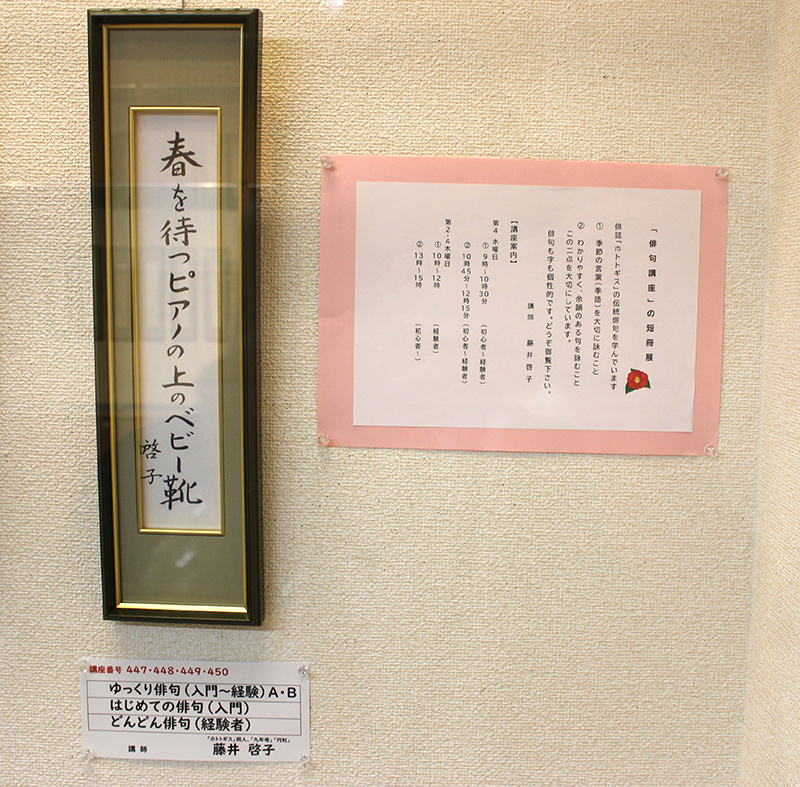 春を待つピアノの上のベビー靴
啓子
「俳句講座」の短冊展
俳誌「ホトトギス」の伝統俳句を学んでいます
① 季節の言葉(季語)を大切に詠むこと
② わかりやすく、余韻のある句を詠むこと
この二点を大切にしています。
俳句も字も個性的です。どうぞ御覧下さい。
講師 藤井 啓子
【講座案内】
第4 水曜日
① 9時~10時30分 (初心者~経験者)
② 10時45分~12時15分 (初心者~経験者)
第2・4木曜日
① 10時~12時 (経験者)
② 13時~15時 (初心者~)
講座番号 447・448・449・450
ゆっくり俳句(入門~経験)A・B
はじめての俳句(入門)
どんどん俳句(経験者)
「ホトトギス」同人、「九年母」「円虹」
講師 藤井 啓子